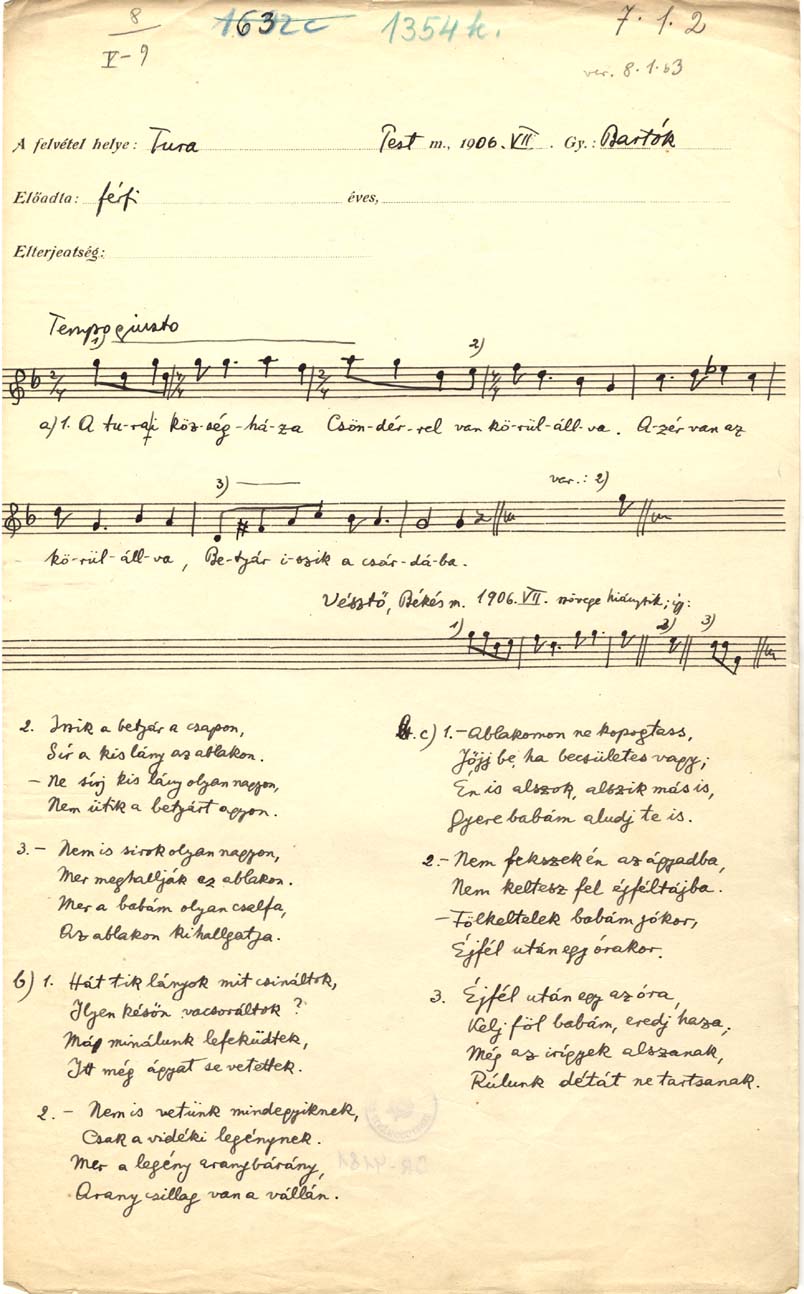 8
V-9
1354k.
7.1.2
ver. 8.1.63
A felvétel helye: Tura Pest m., 1906. VII. Gy.: Bartók
Előadta: férfi éves,
Elterjeatség:
Tempo giusto
1) 2)
2/4 3/4 2/4 3/4
a) 1. A tu-rai köz-ség-há-za Csön-dér-rel van kö-rül-áll-va. A-zér van az
3) var.: 2)
kö-rül-áll-va, Be-tyár i-szik a csár-dá-ba.
Vésztő, Békés m. 1906. VII. szövege hiányzik; így:
1) 2) 3)
2. Iszik a betyár a csapon,
Sír a kis lány az ablakon.
- Ne sírj kis lány olyan nagyon,
Nem ütik a betyárt agyon.
3. - Nem is sirok olyan nagyon,
Mer meghallják az ablakon.
Mer a babám olyan csalfa,
Az ablakon kihallgatja.
b) 1. Hát tik lányok mit csináltok,
Ilyen későn vacsoráltok?
Máj minálunk lefeküdtek,
Itt még ágyat se vetettek.
2. - Nem is vetünk mindegyiknek,
Csak a vidéki legénynek.
Mer a legény aranybárány,
Arany csillag van a vállán.
c) 1. - Ablakomon ne kopogtass,
Jőjj be, ha becsületes vagy;
Én is alszok, alszik más is,
Gyere babám aludj te is.
2. - Nem fekszek én az ágyadba,
Nem keltesz fel éjféltájba.
- Fölkeltelek babám jókor,
Éjfél után egy órakor.
3. Éjfél után egy az óra,
Kelj föl babám, eredj haza,
Még az irigyek alszanak,
Rúlunk détát ne tartsanak.